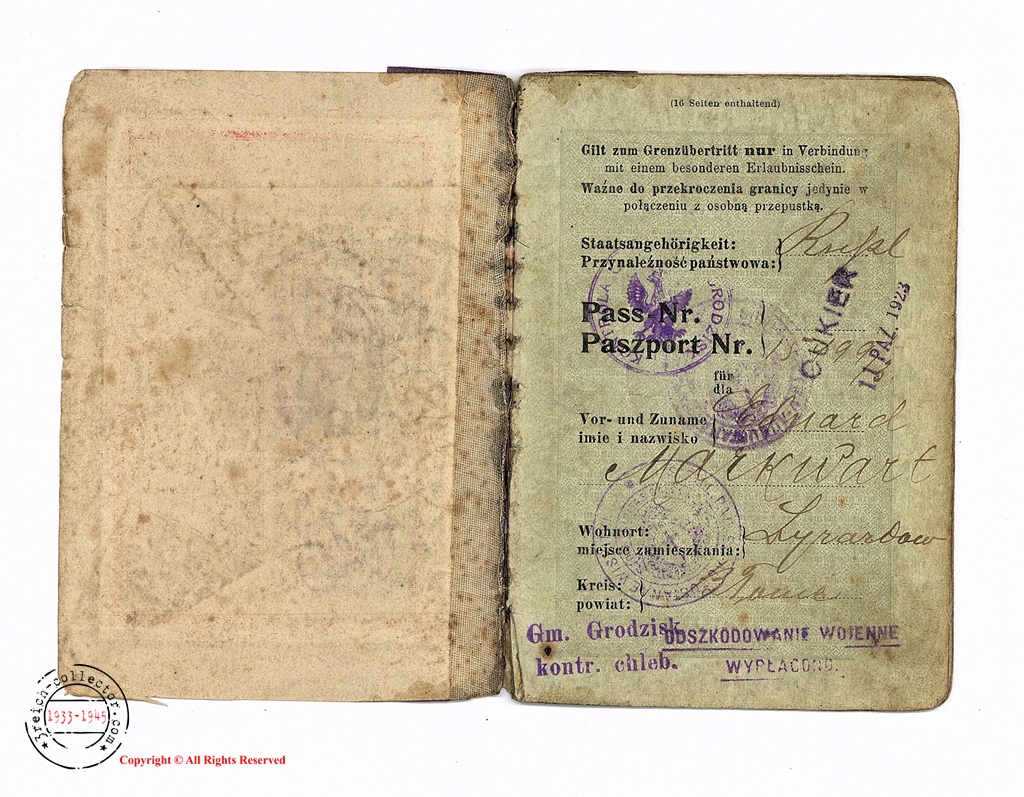 (16 Seiten enthaltend)
Gilt zum Grenzübertritt nur in Verbindung
mit einem besonderen Erlaubnisschein.
Ważne do przekroczenia granicy jedynie w
połączeniu z osobną przepustką.
Staatsangehörigkeit:
Przynależność państwowa:
CUKIER
11 PAZ. 1923
Pass-Nr.
Paszport Nr.
für
dla
Vor- und Zuname
imie i nazwisko
Eduard
Markwart
Wohnort:
miejsce zamieszkania:
Zyrardow
Kreis:
powiat:
Błonie
Gm. Grodzisk
kontr. chleb.
ODSZKODOWANIE WOJENNE
WYPŁACONO.
3reich-collector.com
1933-1945
Copyright © All Rights Reserved